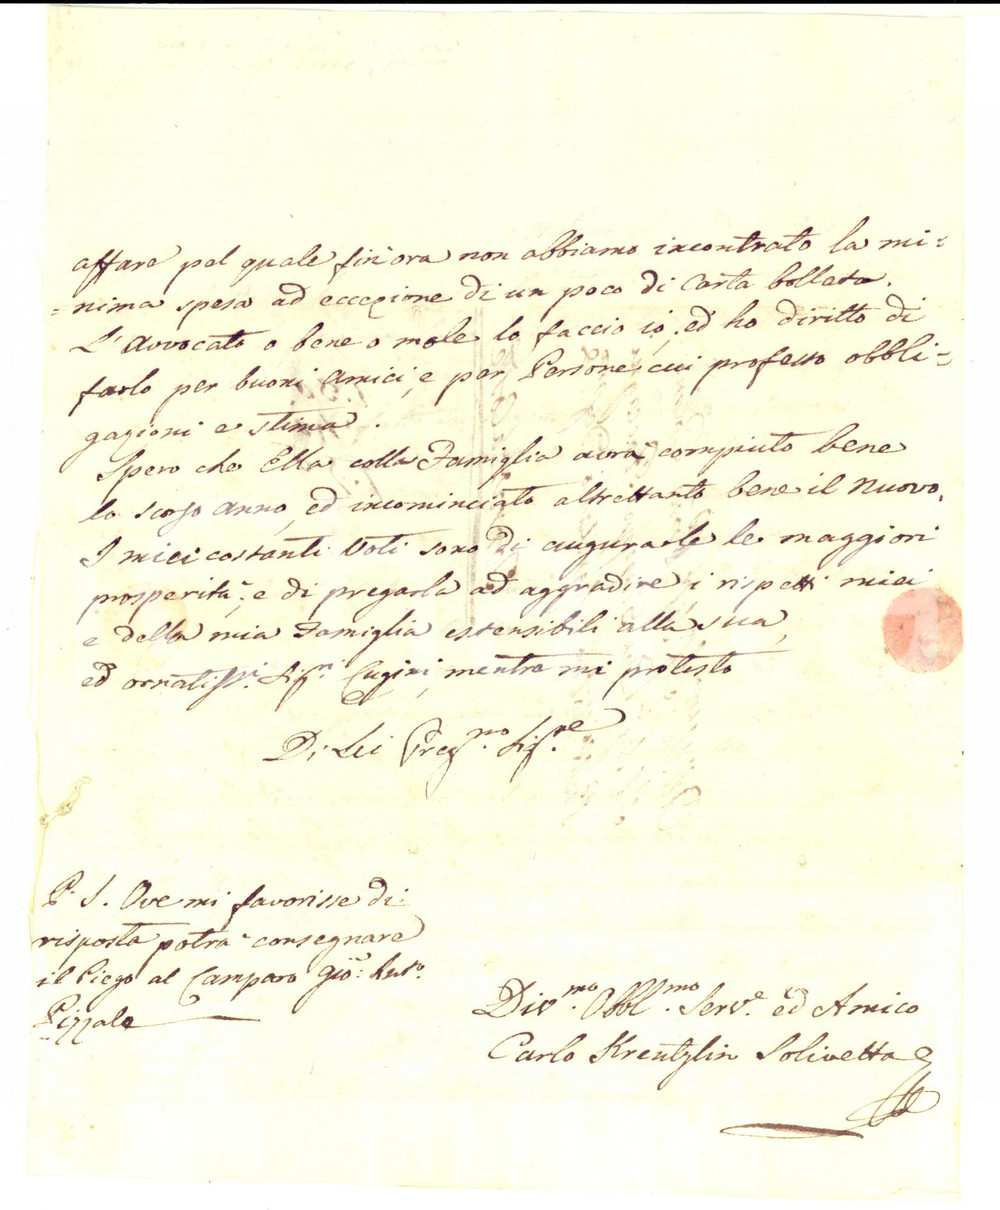 affare pel quale fin'ora non abbiamo incontrato la mi=
=nima spesa ad eccezione di un poco di Carta bollata.
L'Avvocato o bene o male lo faccio io, ed ho diritto di
farlo per buoni amici, e per Persone cui professo obbli=
gazioni e stima.
Spero che Ella colla Famiglia avrà compiuto bene
lo scorso anno, ed incominciato altrettanto bene il nuovo.
I miei costanti Voti sono di augurarle le maggiori
prosperità, e di pregarla ad aggradire i rispetti miei
e della mia Famiglia estensibili alla sua,
ed ornatissi. Sign Cugini, mentre mi protesto
Di Lei Pregmo. Sigre
P. S. Ove mi favorisse di
risposta potrà consegnare
il Piego al Camparo Gio: Anto.
Pizzale
Divmo. Obblmo. Serve. ed Amico
Carlo Krentzlin Solivetta